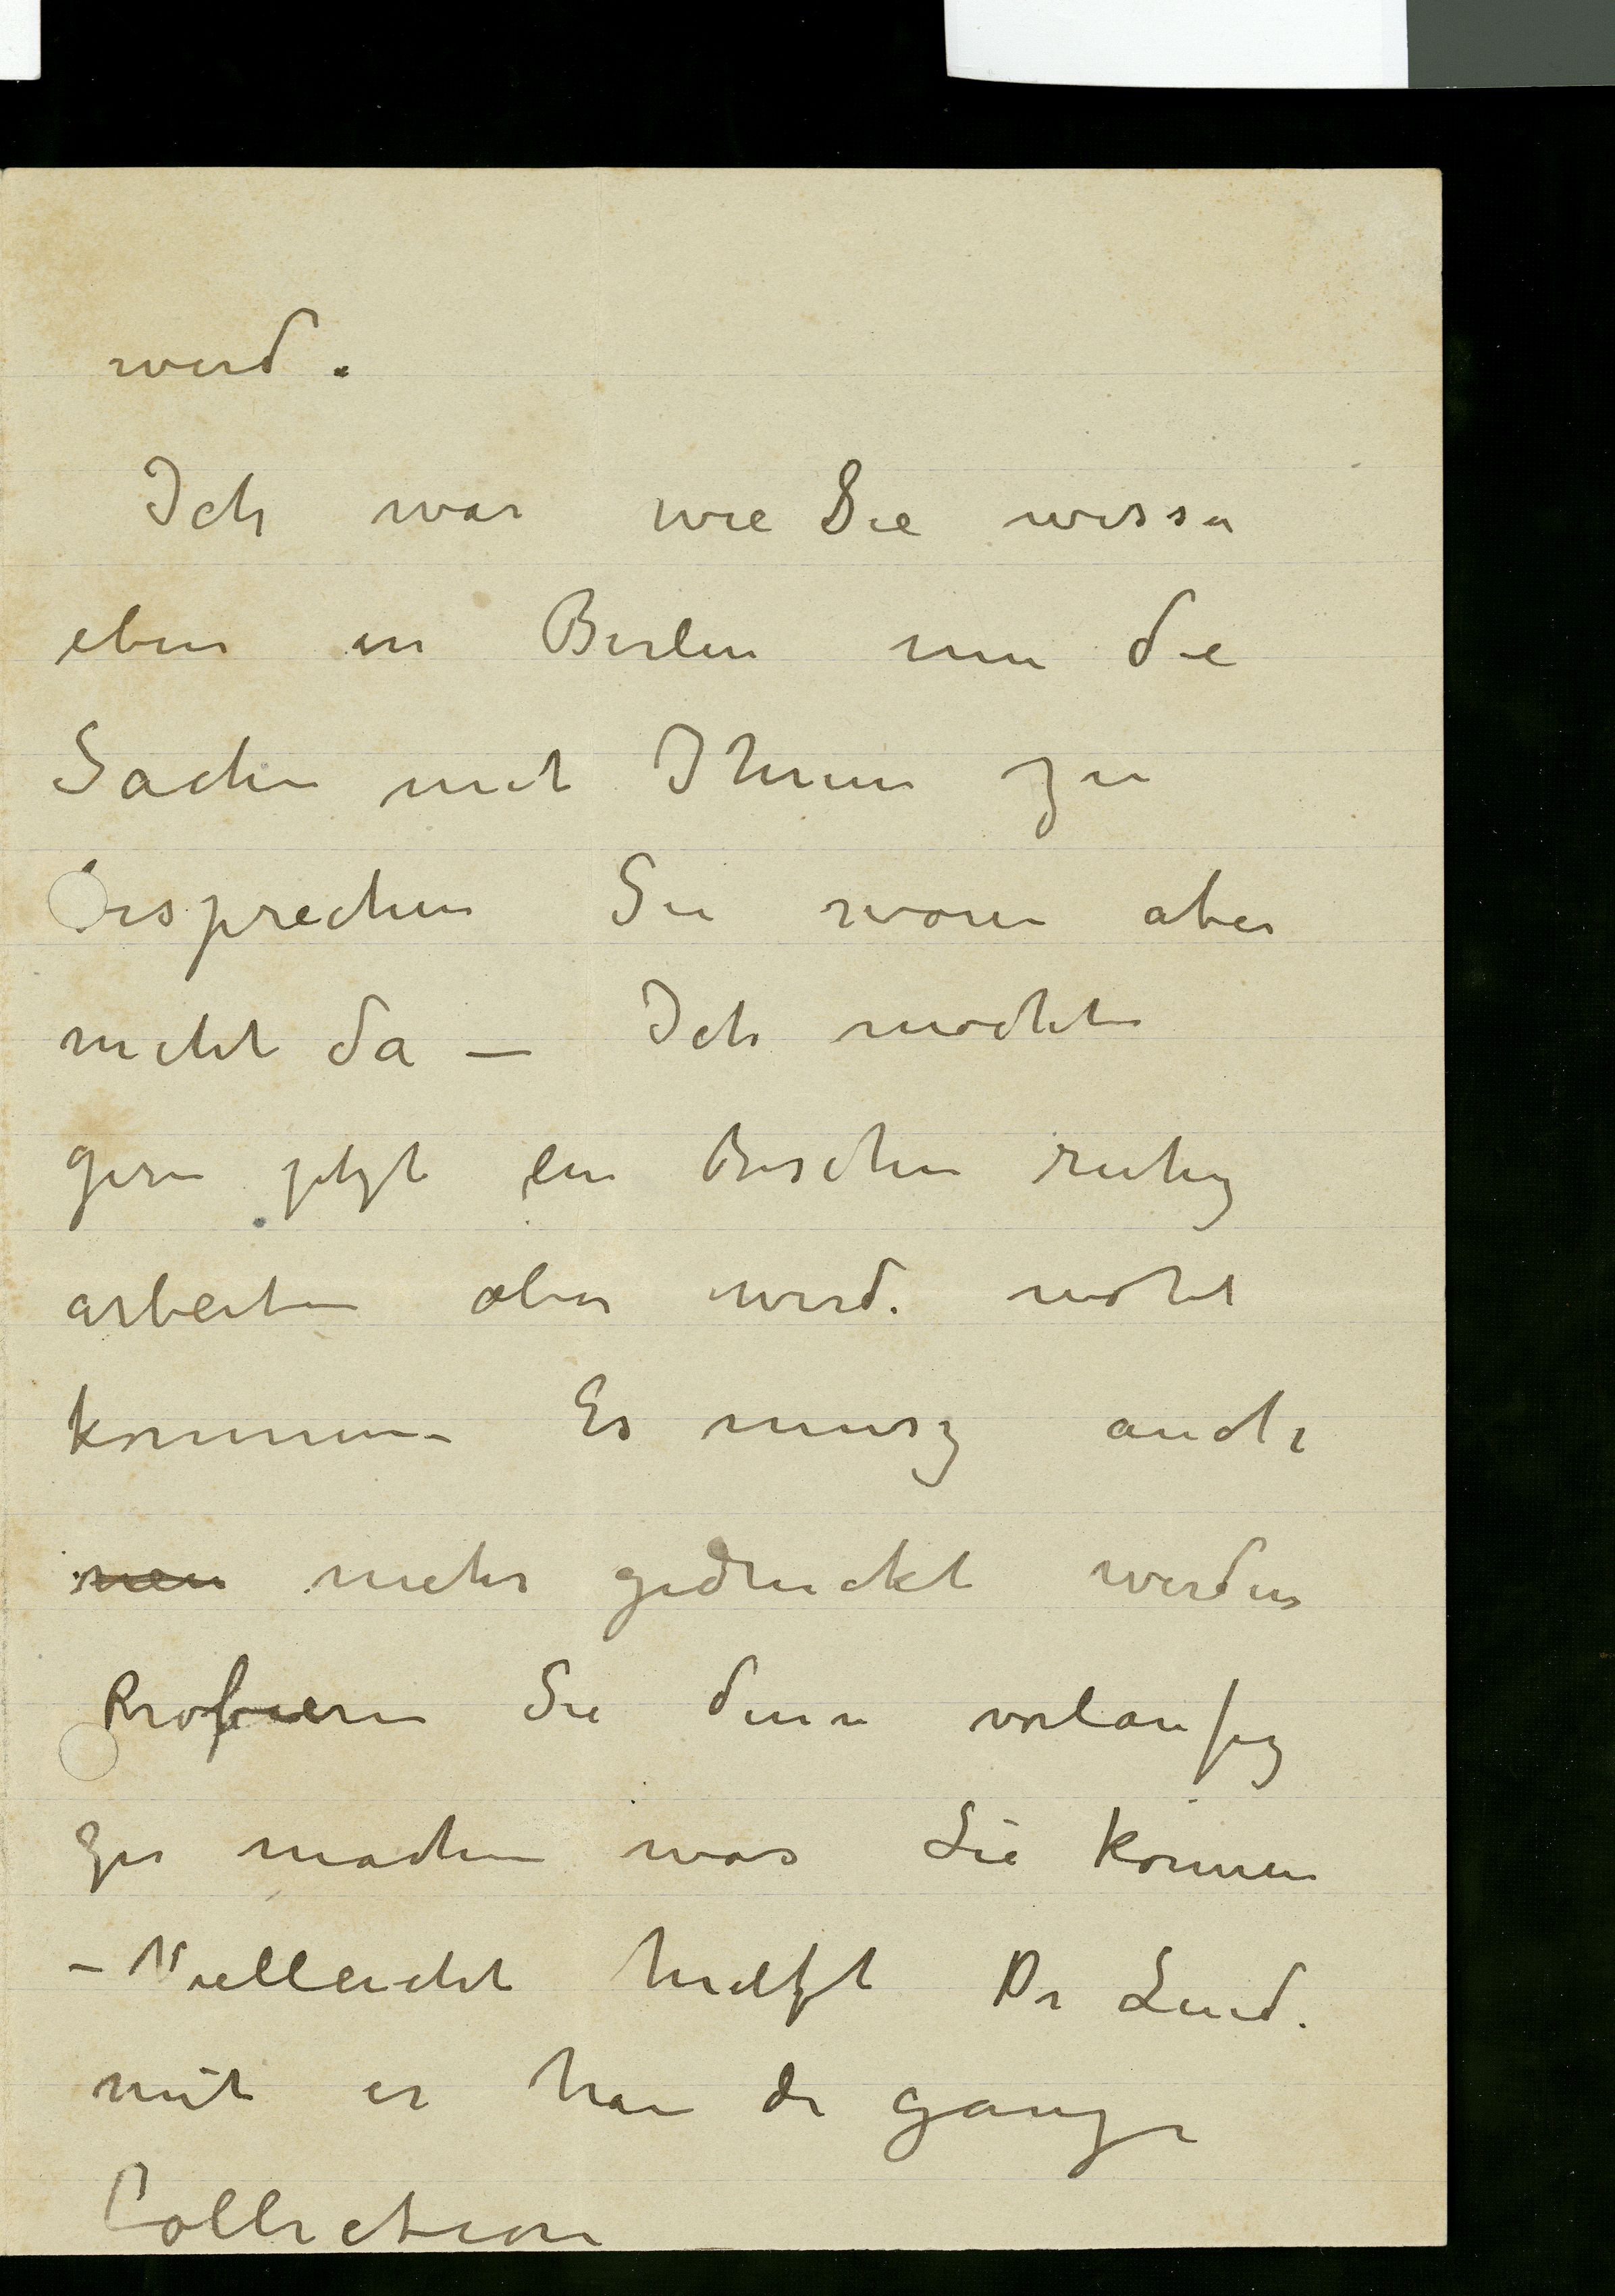 wird.
Ich war wie Sie wissen
eben in Berlin um die
Sachen mit Ihnen zu
besprechen Sie waren aber
nicht da — Ich möchte
gern jetzt ein Bischen ruhig
arbeiten aber wird. nicht
kommen - Es musz auch
neu mehr gedruckt werden
Probieren Sie denn vorläufig
zu machen was Sie können
- Vielleicht hielft Dr Lind.
mit er hat die ganze
Collection